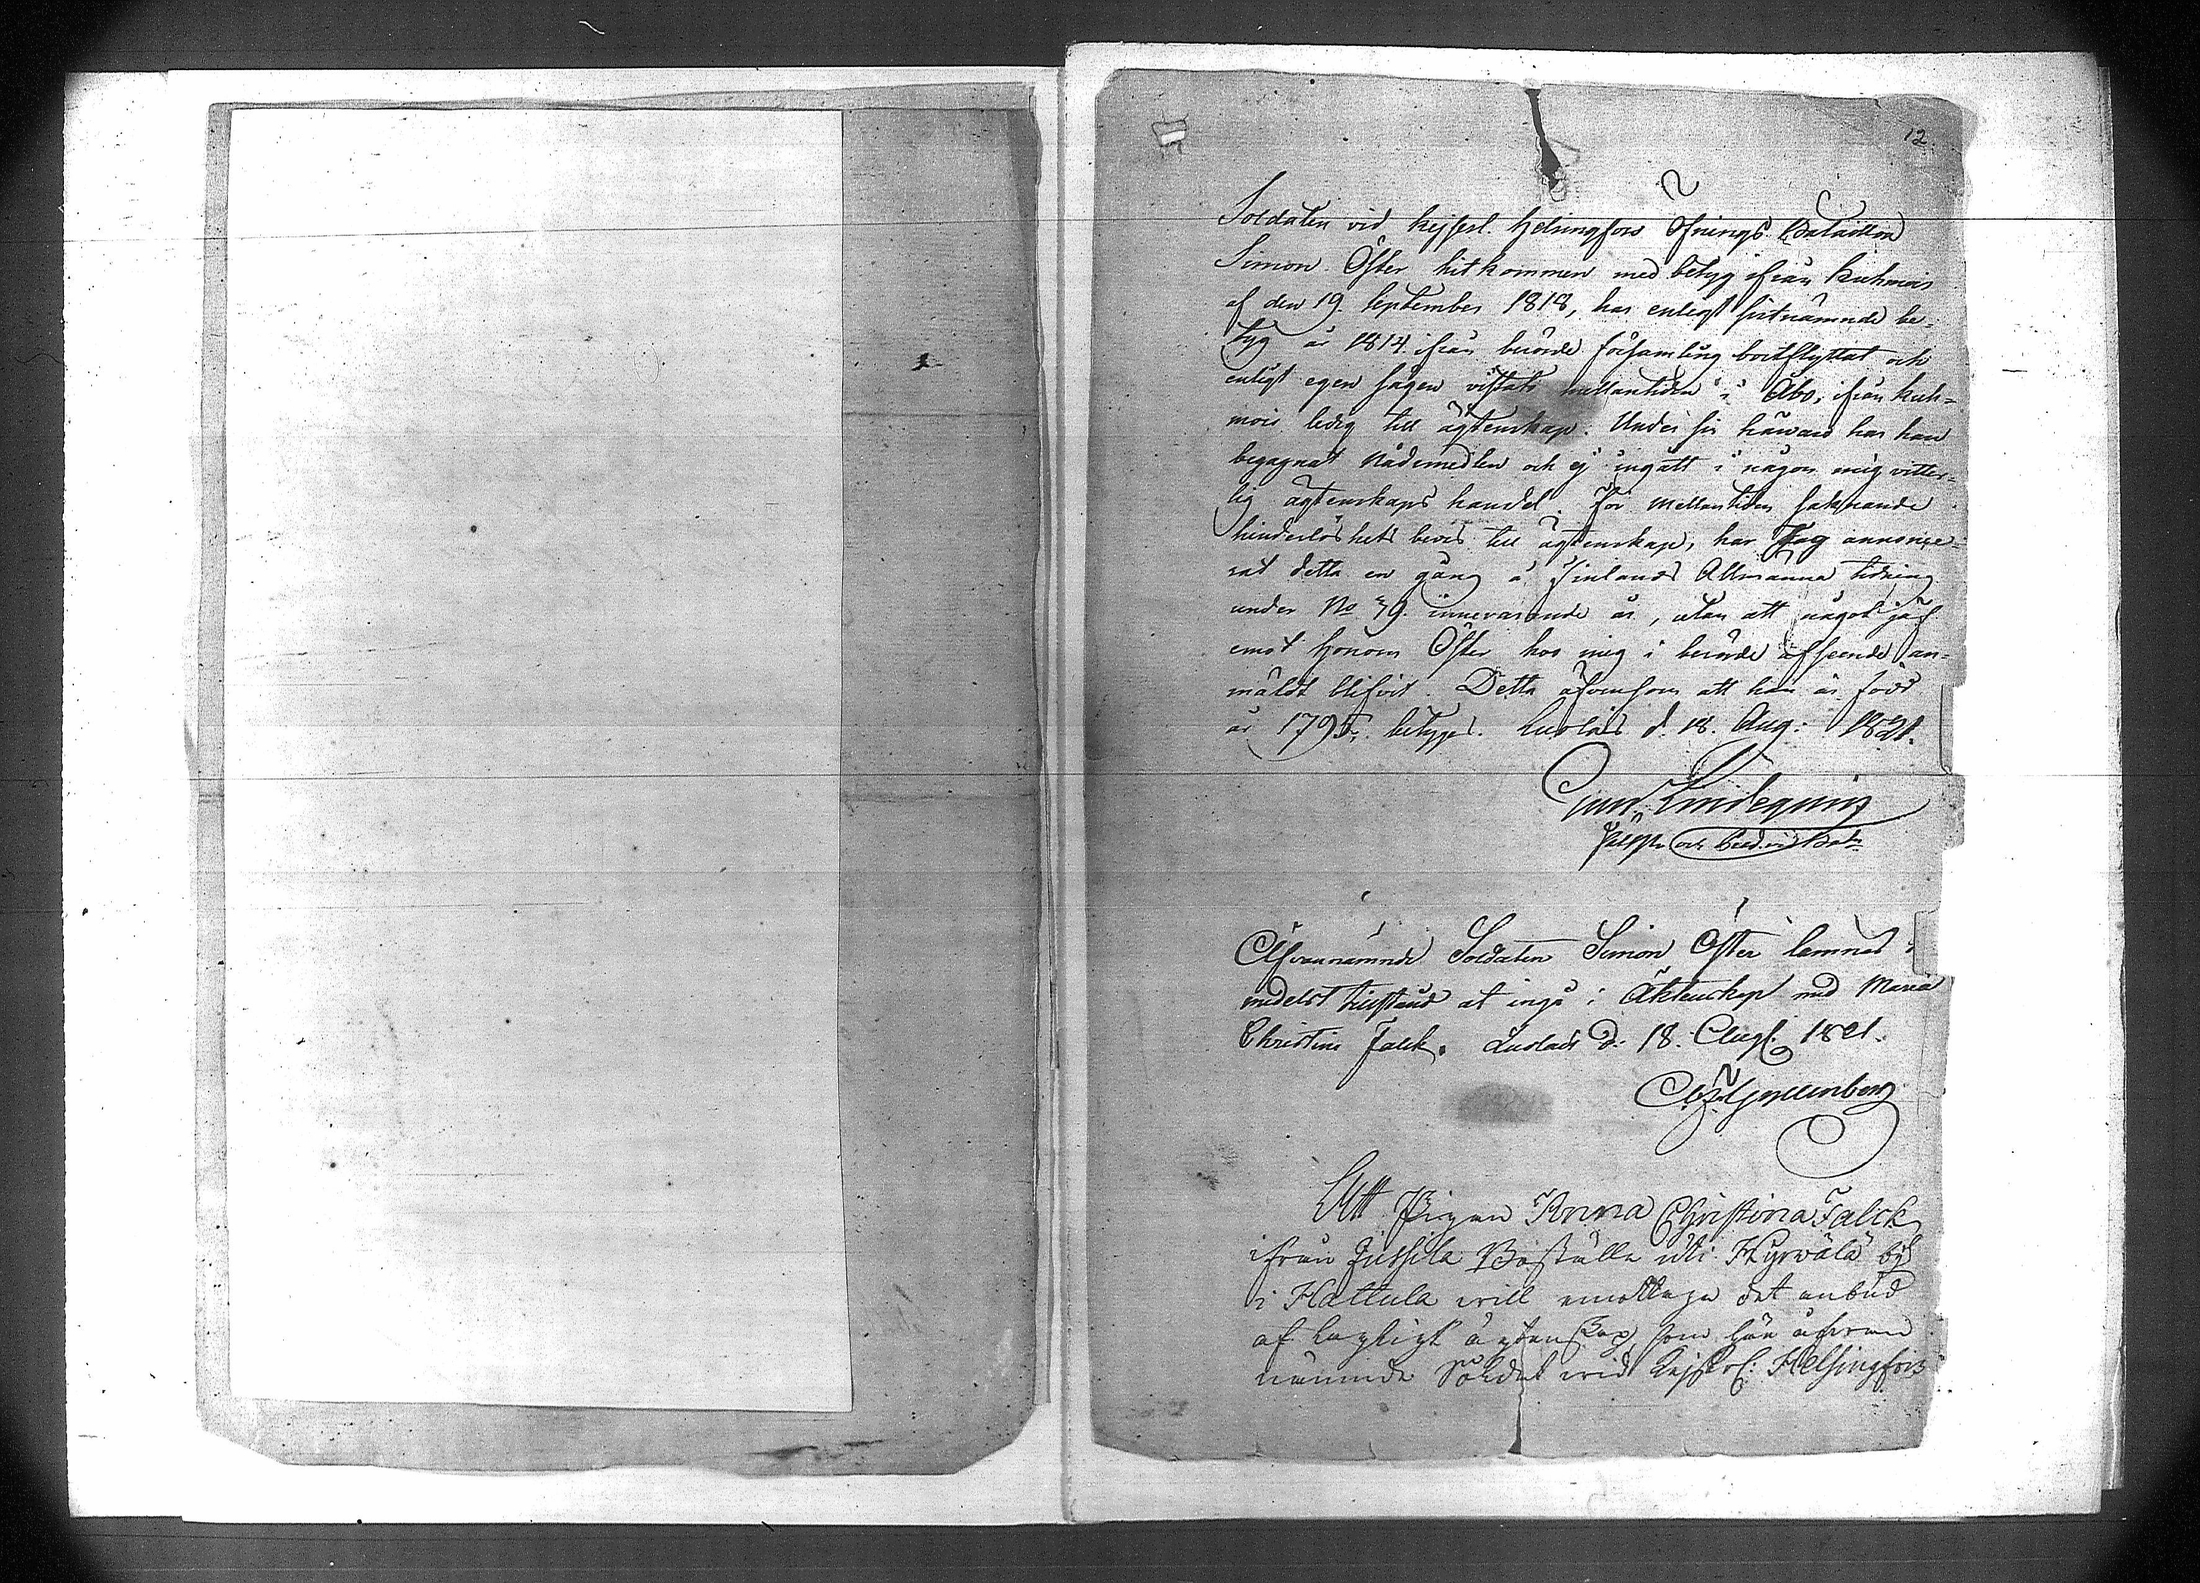 12.
Soldaten vid Kejserl. Helsingfors Öfnings Bataillon
Simon Öster hitkommen med betyg ifrån Kuhmois
af den 19. September 1818, har enligt sistnämnde be-
tyg år 1814 ifrån berörde församling bortflyttat och
enligt egen sägen vistats mellantiden i Åbo, ifrån Kuh-
mois ledig till ägtenskap. Under sin härvaro har han
begagnat Nådemedlen och ej ingått i någon mig vitter-
lig ägtenskaps handel. För mellantiden saknande
hinderlöshets bevis till ägtenskap, har Jag annonce-
rat detta en gång i Finlands Allmänna tidning
under No 79 innevarande år, utan att något jäf
emot honom Öster hos mig i berörde afseende an-
mäldt blifvit. Detta äfvensom att han är född
år 1795, betygas. Lustais d. 18. Aug: 1821.
Lindequist
och Bat:
Åfvannämnde Soldaten Simon Öster lemnas
medelst tillstånd at ingå i Äktenskap med Maria
Christina Falck. d: 18. Aug. 1821.
Att Pigan Anna Christina Falck
ifrån Jussila Boställe uti Hyrwälä by
i Hattula will emottaga det anbud
af lagligt ägtenskap, som här åfwan
nämnde Soldat wid Kejserl: Helsingfors